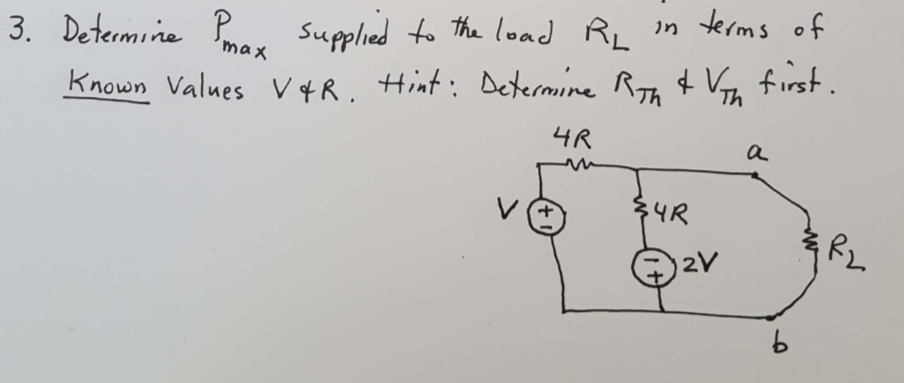 3. Determine Pmax supplied to the load RL in terms of
Known Values V & R. Hint: Determine RTh & VTh first.
4R
a
V
+
-
4R
RL
-
+
2V
b